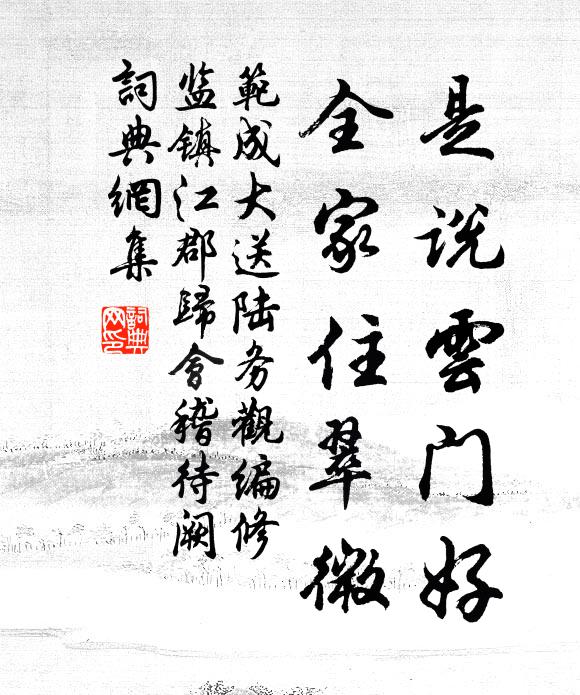 是说雲门好
全家住翠微
範成大送陆务觀編修
监镇江郡歸會稽待阙
詞典網集
詞典网印